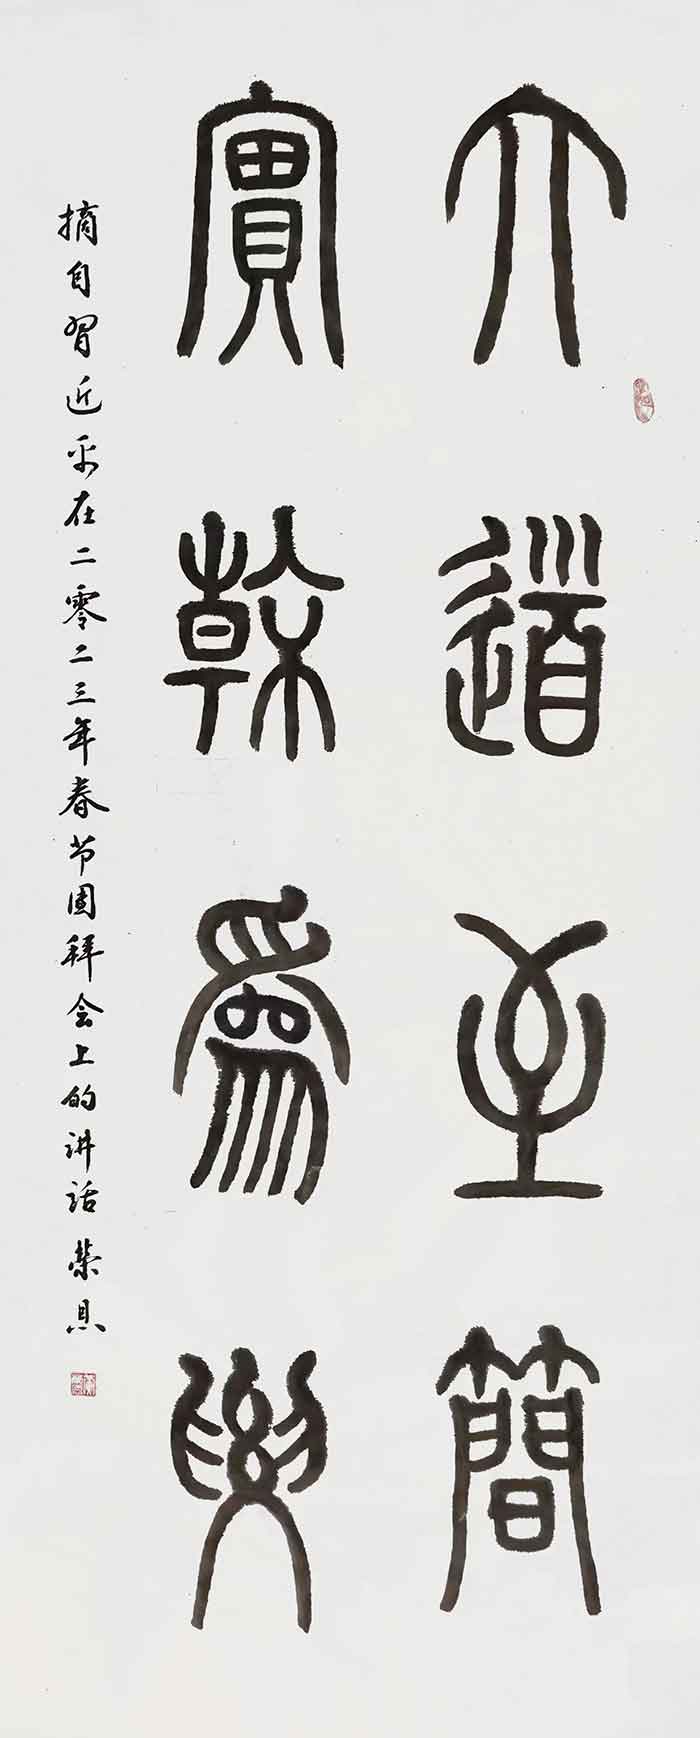 大道至簡
實幹為要
摘自习近平在二零二三年春节团拜会上的讲话